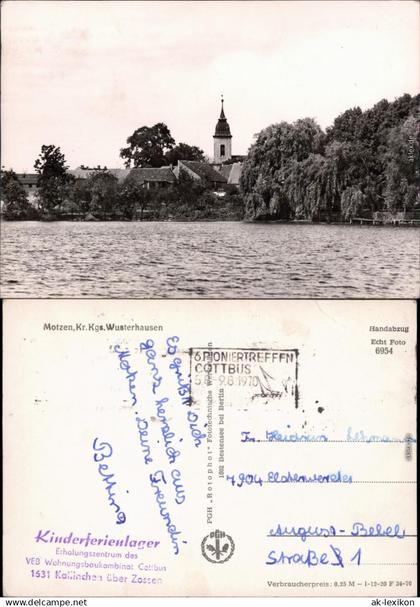 Motzen, Kr. Kgs. Wusterhausen
Handabzug
Echt Foto
6954
Es grüßt Dich
ganz herzlich aus
Motzen. Deine Freundin
Bettina
6. PIONIERTREFFEN
COTTBUS
9.8.1970
PGH „Rotophot" Fotochemische
1602 Bestensee bei Berlin
PGH
7904 Elsterwerda
August-Bebel
Straße 1
Kinderferienlager
Erholungszentrum des
VEB Wohnungsbaukombinat Cottbus
1631 Kallinchen über Zossen
Verbraucherpreis: 0,25 M - I-12-20 F 34-70
© www.ak-lexikon.de